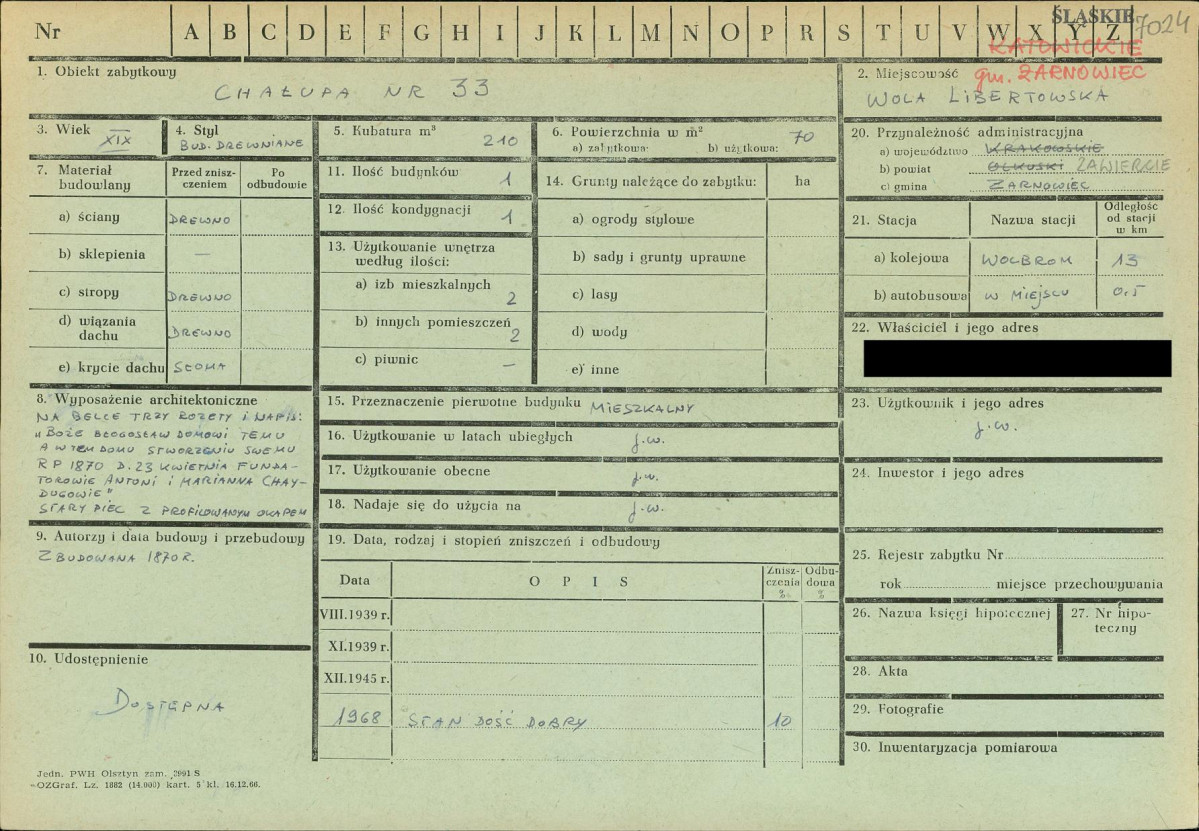 Nr A B C D E F G H I J K L M N O P R S T U V W X Y Z
ŚLĄSKIE
7024
KATOWICKIE
gm. ŻARNOWIEC
1. Obiekt zabytkowy
CHAŁUPA NR 33
2. Miejscowość
WOLA LIBERTOWSKA
3. Wiek
XIX
4. Styl
BUD. DREWNIANE
5. Kubatura m³
210
6. Powierzchnia w m²
70
a) zabytkowa: b) użytkowa:
7. Materiał budowlany
Przed zniszczeniem
Po odbudowie
a) ściany DREWNO
b) sklepienia —
c) stropy DREWNO
d) wiązania dachu DREWNO
e) krycie dachu SŁOMA
8. Wyposażenie architektoniczne
NA BELCE TRZY ROZETY I NAPIS:
„BOŻE BŁOGOSŁAW DOMOWI TEMU
A W TEM DOMU STWORZENIU SWEMU
R P 1870 D. 23 KWIETNIA FUNDA-
TOROWIE ANTONI I MARIANNA CHAY-
DUGOWIE"
STARY PIEC Z PROFILOWANYM OKAPEM
9. Autorzy i data budowy i przebudowy
ZBUDOWANA 1870 R.
10. Udostępnienie
DOSTĘPNA
11. Ilość budynków 1
12. Ilość kondygnacji 1
13. Użytkowanie wnętrza
według ilości:
a) izb mieszkalnych 2
b) innych pomieszczeń 2
c) piwnic —
14. Grunty należące do zabytku: ha
a) ogrody stylowe
b) sady i grunty uprawne
c) lasy
d) wody
e) inne
15. Przeznaczenie pierwotne budynku MIESZKALNY
16. Użytkowanie w latach ubiegłych j.w.
17. Użytkowanie obecne j.w.
18. Nadaje się do użycia na j.w.
19. Data, rodzaj i stopień zniszczeń i odbudowy
Data OPIS Zniszczenia % Odbudowa %
VIII.1939 r.
XI.1939 r.
XII.1945 r.
1968 STAN DOŚĆ DOBRY 10
20. Przynależność administracyjna
a) województwo KRAKOWSKIE
b) powiat OLKUSKI ZAWIERCIE
c) gmina ŻARNOWIEC
21. Stacja Nazwa stacji Odległość od stacji w km
a) kolejowa WOLBROM 13
b) autobusowa W MIEJSCU 0.5
22. Właściciel i jego adres
23. Użytkownik i jego adres
j.w.
24. Inwestor i jego adres
25. Rejestr zabytku Nr
rok miejsce przechowywania
26. Nazwa księgi hipotecznej
27. Nr hipo-
teczny
28. Akta
29. Fotografie
30. Inwentaryzacja pomiarowa
Jedn. PWH Olsztyn zam. 2991 S
OZGraf. Lz. 1882 (14.000) kart. 5 kl. 16.12.66.